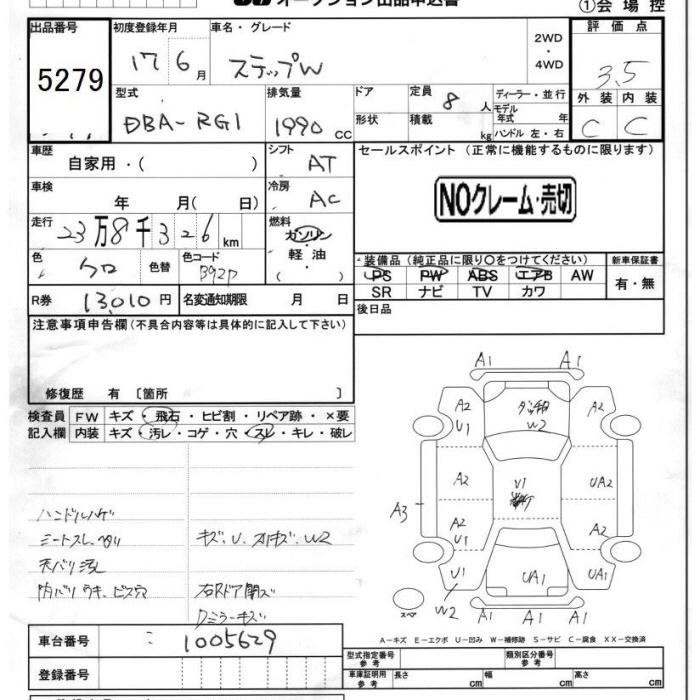 オークション出品申込書
①会場控
出品番号
5279
初度登録年月
17 6月
車名・グレード
ステップW
2WD
・
4WD
評価点
3.5
外装 内装
C C
型式
DBA-RG1
排気量
1990 cc
ドア
形状
定員 8 人
積載 kg
ディーラー・並行
モデル
年式 年
ハンドル 左・右
車歴
自家用・( )
シフト
AT
車検
年 月( 日)
冷房
AC
走行
23万8千326km
燃料
ガソリン
・
軽油
( )
色
クロ
色替
色コード
B92P
R券 13,010円
名変通知期限 月 日
セールスポイント (正常に機能するものに限ります)
NOクレーム・売切
装備品 (純正品に限り〇をつけてください)
PS PW ABS エアB AW
SR ナビ TV カワ
新車保証書
有・無
後日品
注意事項申告欄(不具合内容等は具体的に記入して下さい)
修復歴 有 〔箇所 〕
検査員
記入欄
FW キズ・飛石・ヒビ割・リペア跡・×要
内装 キズ・汚レ・コゲ・穴・スレ・キレ・破レ
ハンドルハゲ
シートスレ・ヘタリ
天バリ汚レ
内バリウキ、ビス穴
キズ、U、スリキズ、W2
右Rドア開ズ
Rミラーキズ
A1 A1
A2
U1
W2
A2
A2
U1
UA2
A3
A2
U1
A2
U1
UA1
UA1
W2
A1 A1 A1
スペア
A-キズ E-エクボ U-凹み W-補修跡 S-サビ C-腐食 XX-交換済
車台番号
1005629
登録番号
型式指定番号
参考
類別区分番号
参考
車庫証明用
参考
長さ cm
幅 cm
高さ cm